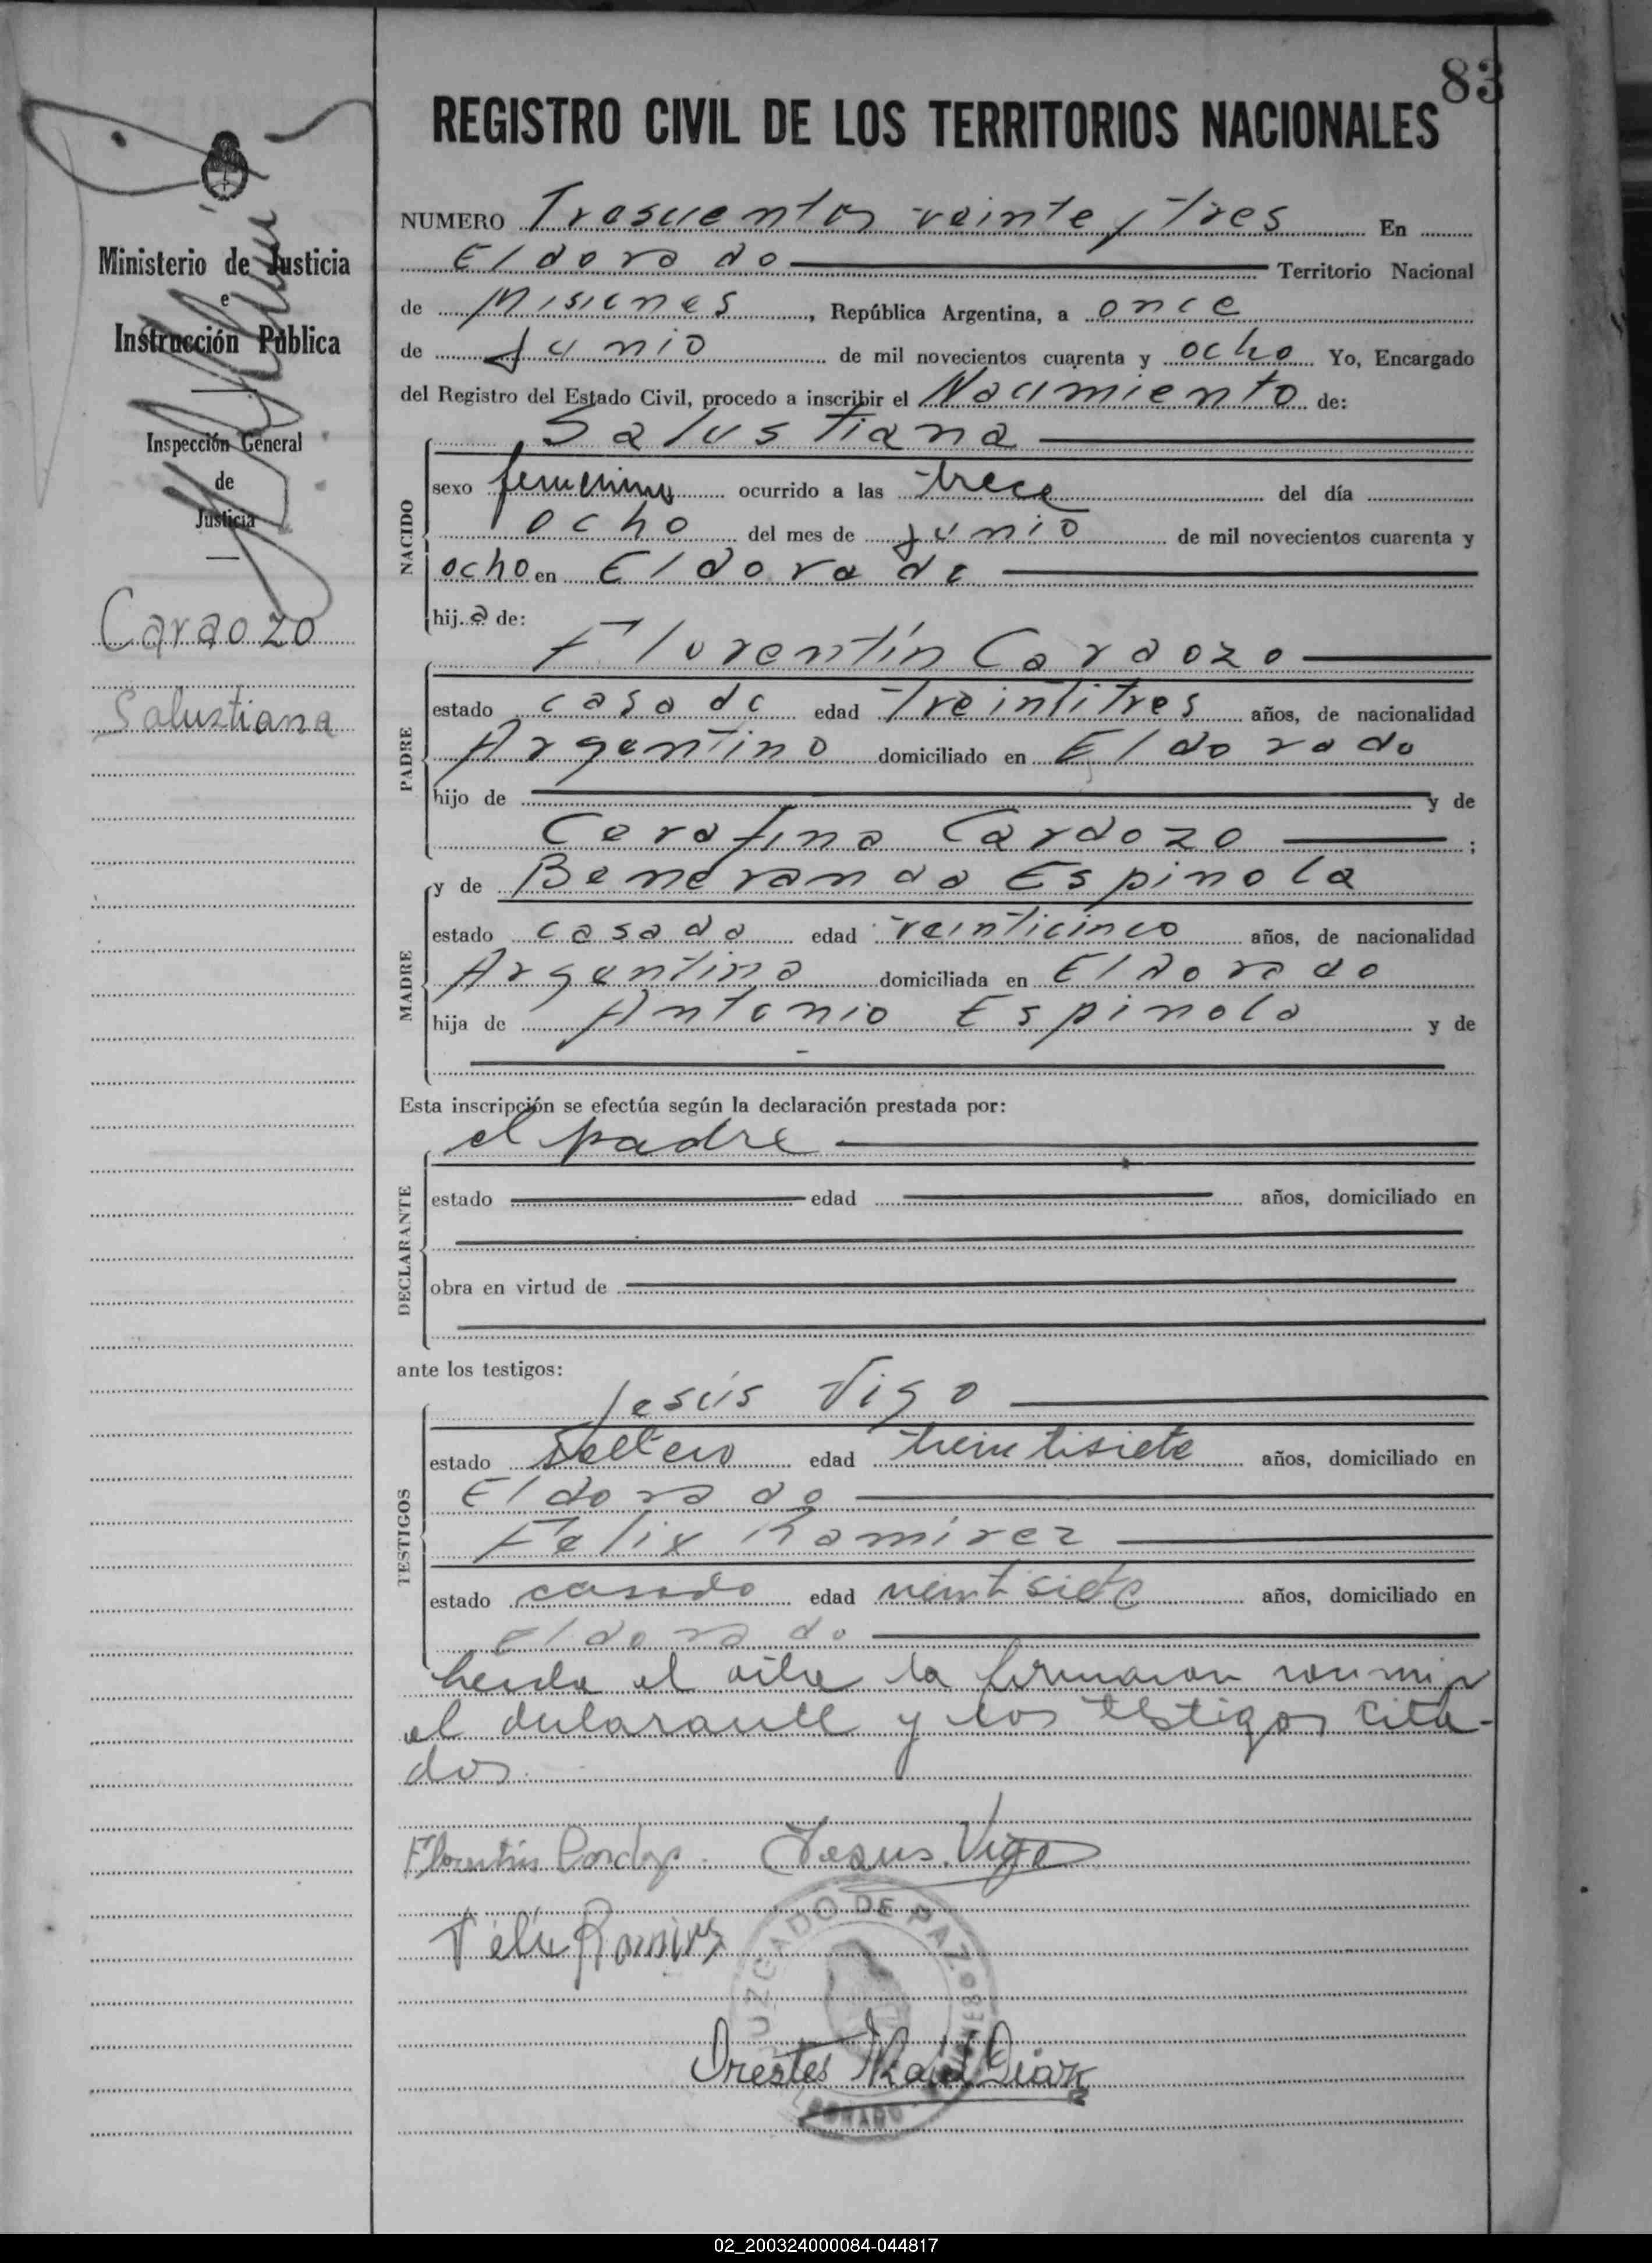 83
REGISTRO CIVIL DE LOS TERRITORIOS NACIONALES
Ministerio de Justicia
e
Instrucción Pública
Inspección General
de
Justicia
Cardozo
Salustiana
NUMERO Trescientos veinte y tres En
Eldorado Territorio Nacional
de Misiones, República Argentina, a once
de Junio de mil novecientos cuarenta y ocho Yo, Encargado
del Registro del Estado Civil, procedo a inscribir el Nacimiento de:
Salustiana
NACIDO
sexo femenino ocurrido a las trece del día
ocho del mes de junio de mil novecientos cuarenta y
ocho en Eldorado
hija de:
Florentín Cardozo
PADRE
estado casado edad treintitres años, de nacionalidad
Argentino domiciliado en Eldorado
hijo de y de
Cerafina Cardozo ;
y de Beneranda Espinola
MADRE
estado casada edad veinticinco años, de nacionalidad
Argentina domiciliada en Eldorado
hija de Antonio Espinola y de
Esta inscripción se efectúa según la declaración prestada por:
el padre
DECLARANTE
estado edad años, domiciliado en
obra en virtud de
ante los testigos:
Jesús Vigo
TESTIGOS
estado soltero edad treintisiete años, domiciliado en
Eldorado
Felix Ramirez
estado casado edad veintisiete años, domiciliado en
Eldorado
Leida el acta la firmaron conmigo
el declarante y los testigos cita-
dos
Florentin Cardozo Jesus Vigo
Félix Ramirez
JUZGADO DE PAZ
Orestes Raúl Diaz
02_200324000084-044817